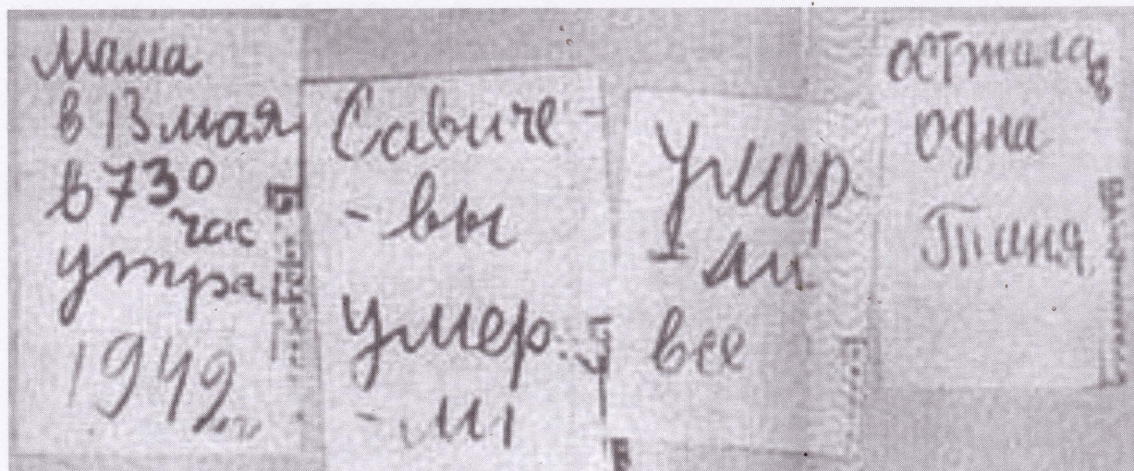 Мама
в 13 мая
в 730
час
утра
1942 г.
Савиче-
-вы
умер.
-ли
Умер
-ли
все
осталась
одна
Таня